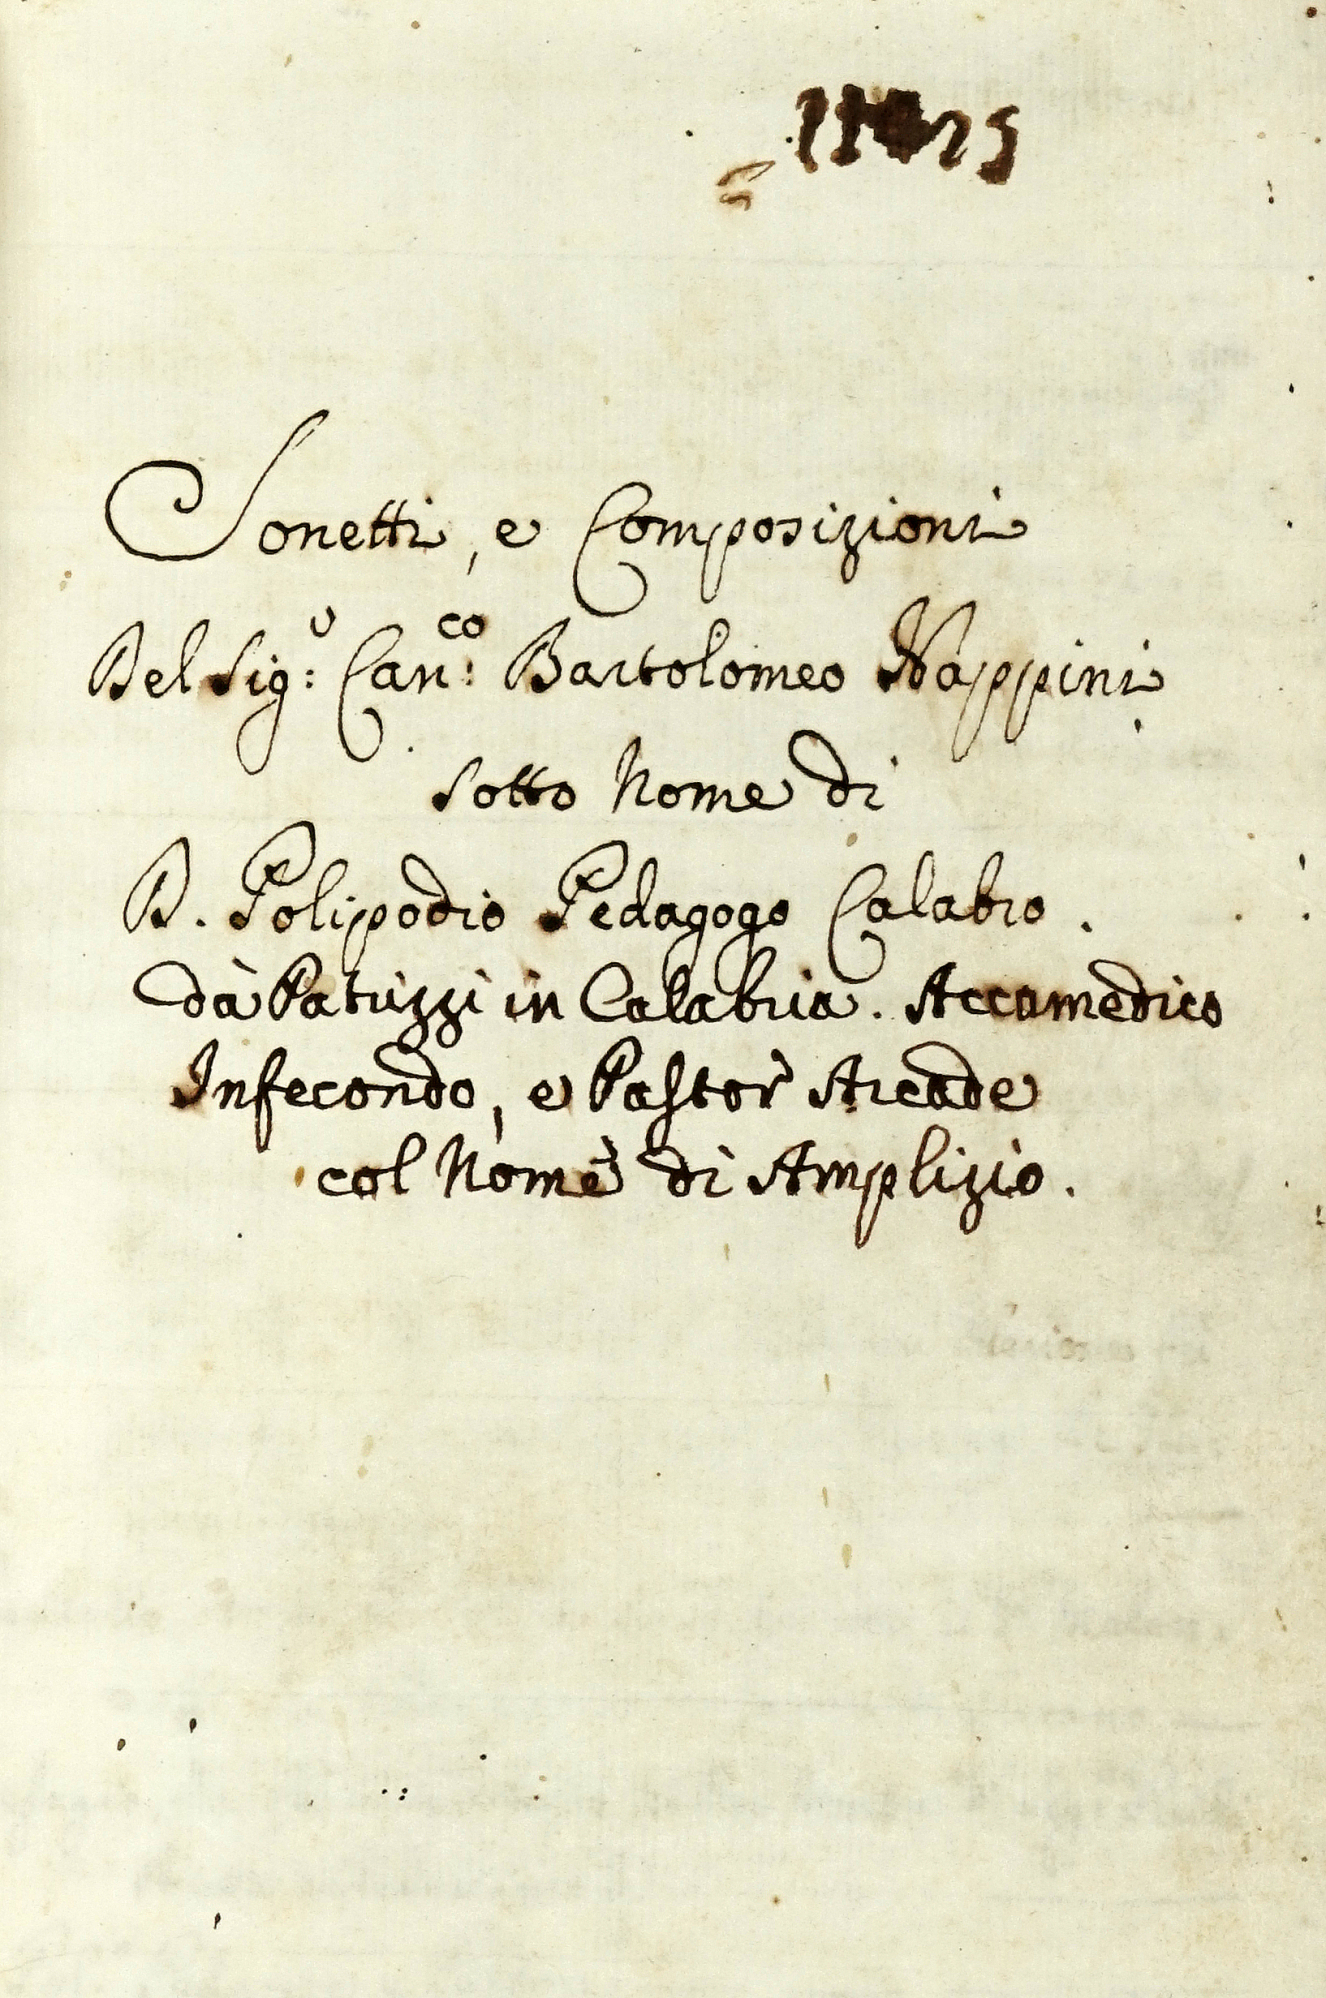 Sonetti, e Composizioni
Del Sig:r Can:co Bartolomeo Nappini
sotto Nome di
D. Polipodio Pedagogo Calabro.
dà Patrizzi in Calabria. Accamedico
Infecondo, e Pastor Arcade
col Nome di Amplizio.